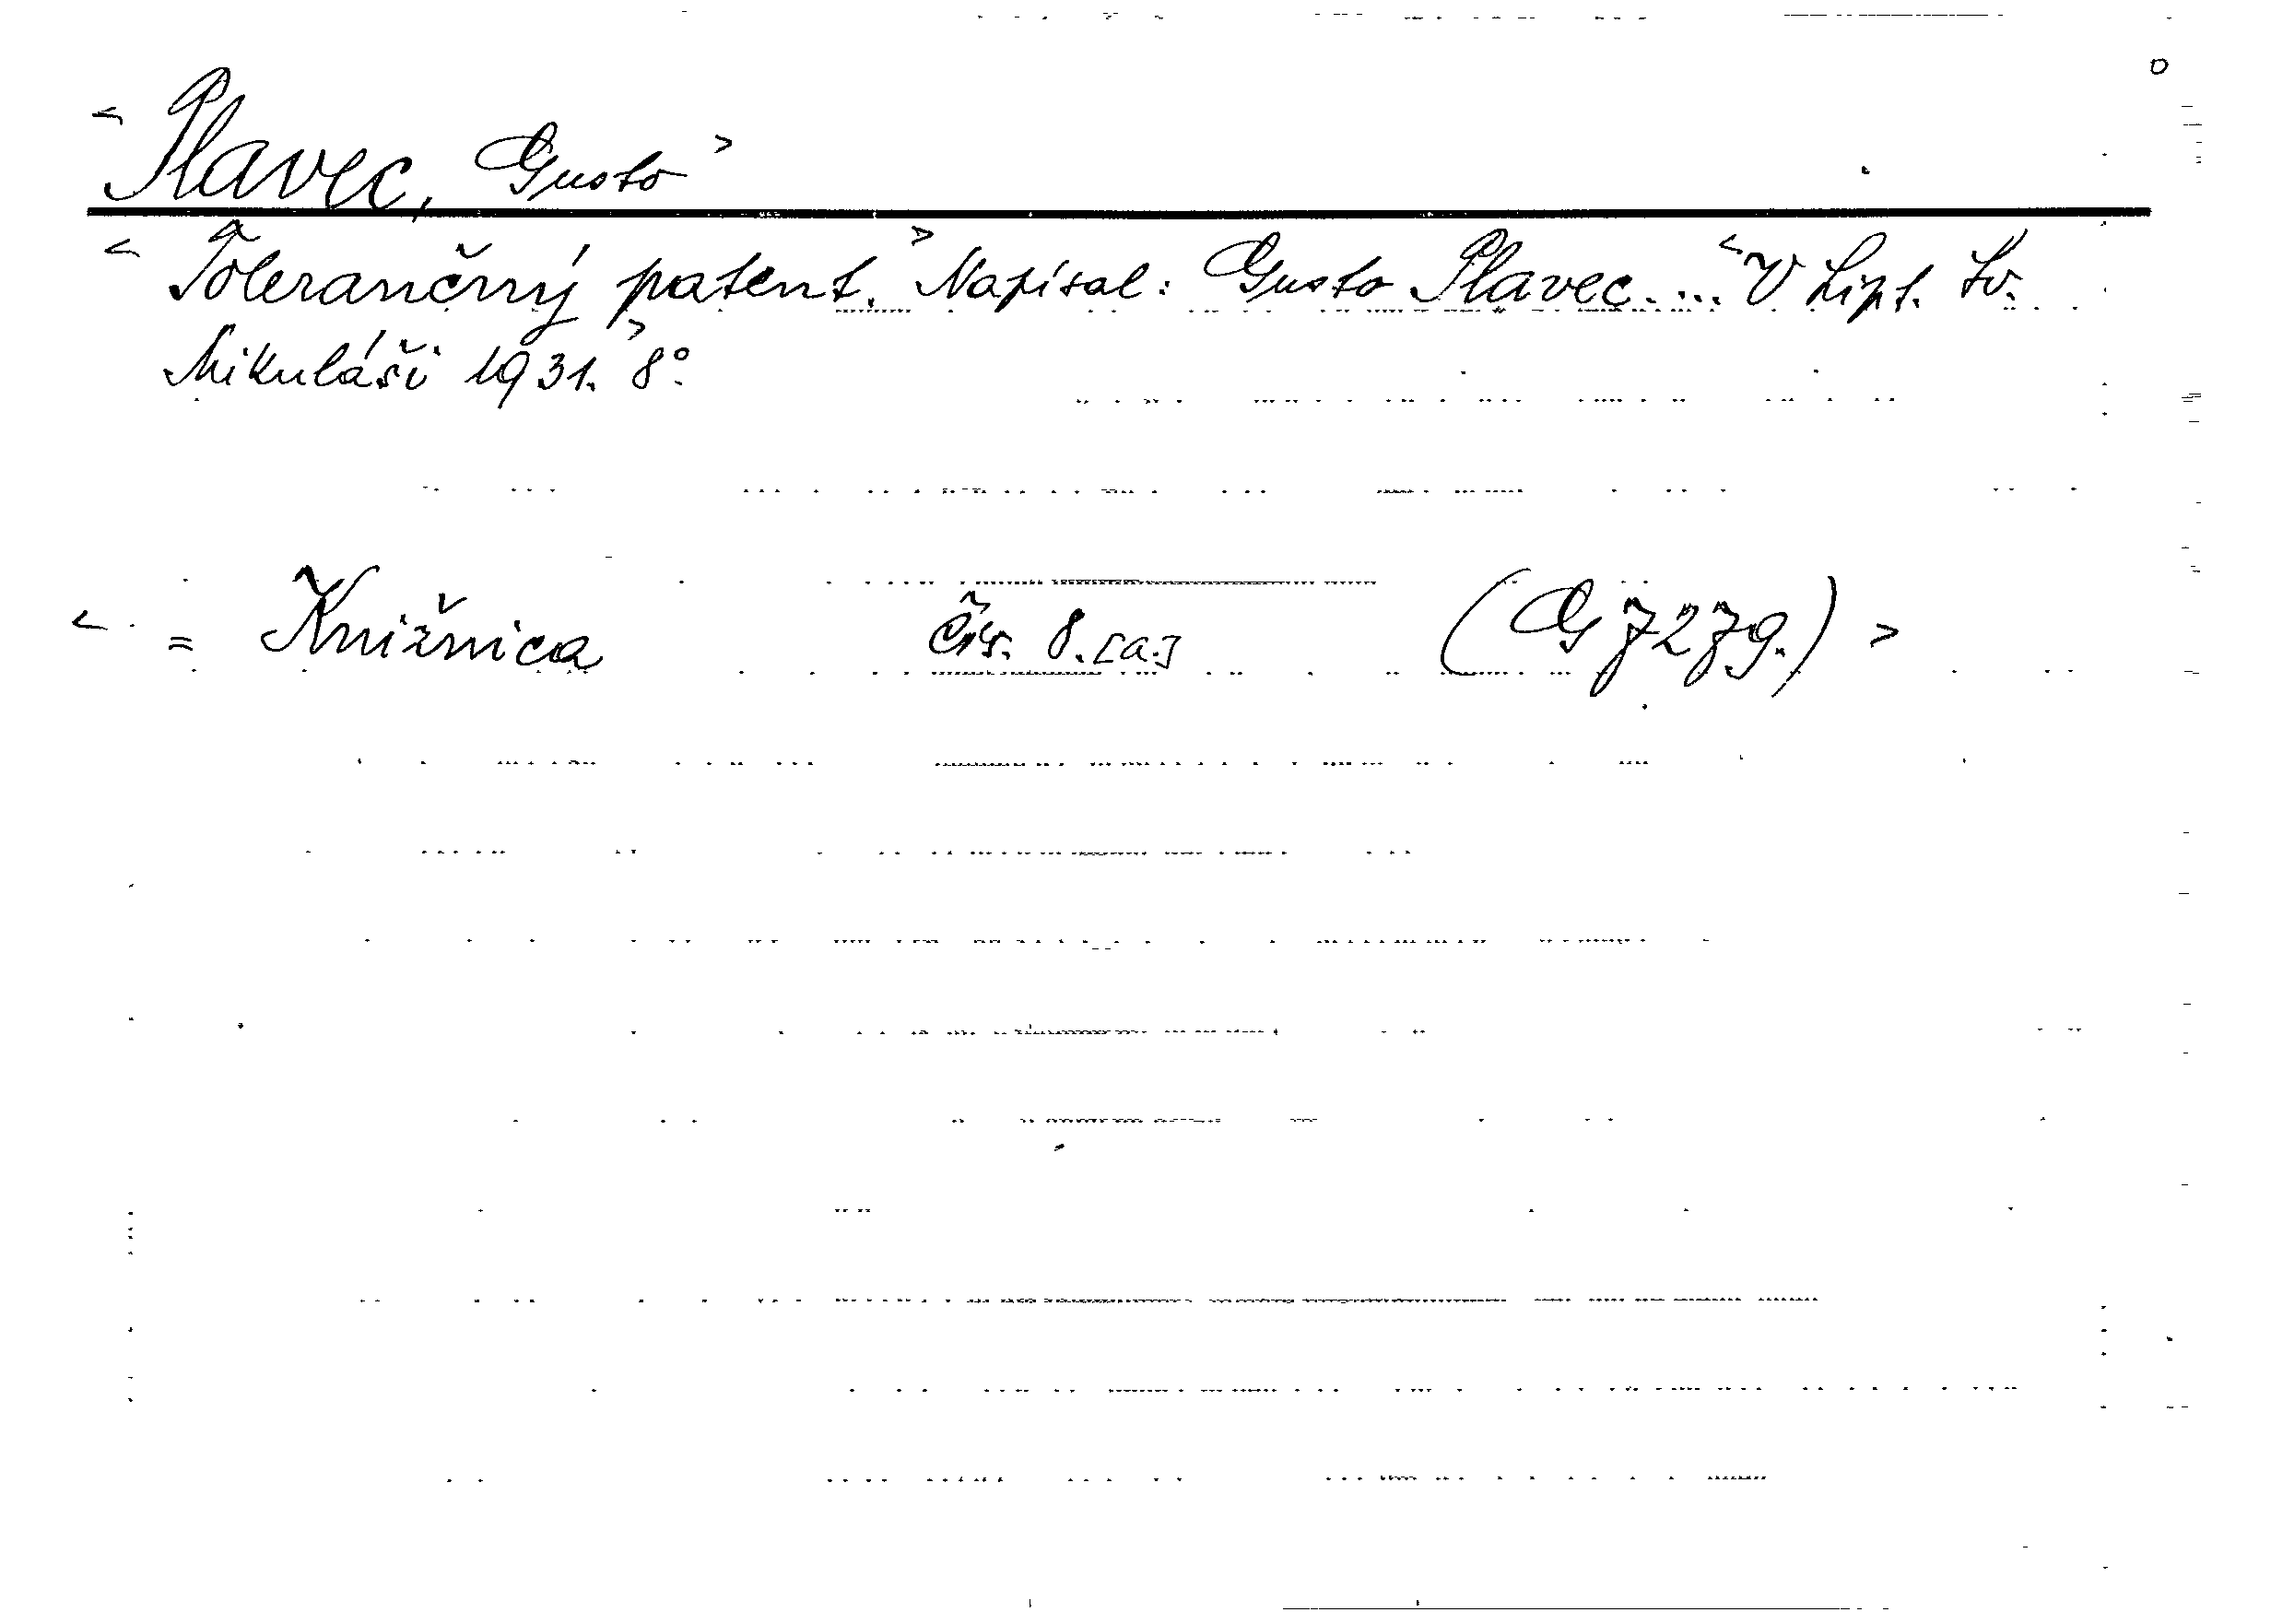 < Plavec, Gusto >
< Tolerančný patent. > Napísal: Gusto Plavec. ... < V Lipt. Sv.
Mikuláši 1931. > 8°.
< = Knižnica čís. 8. [a.] (G 7279.) >